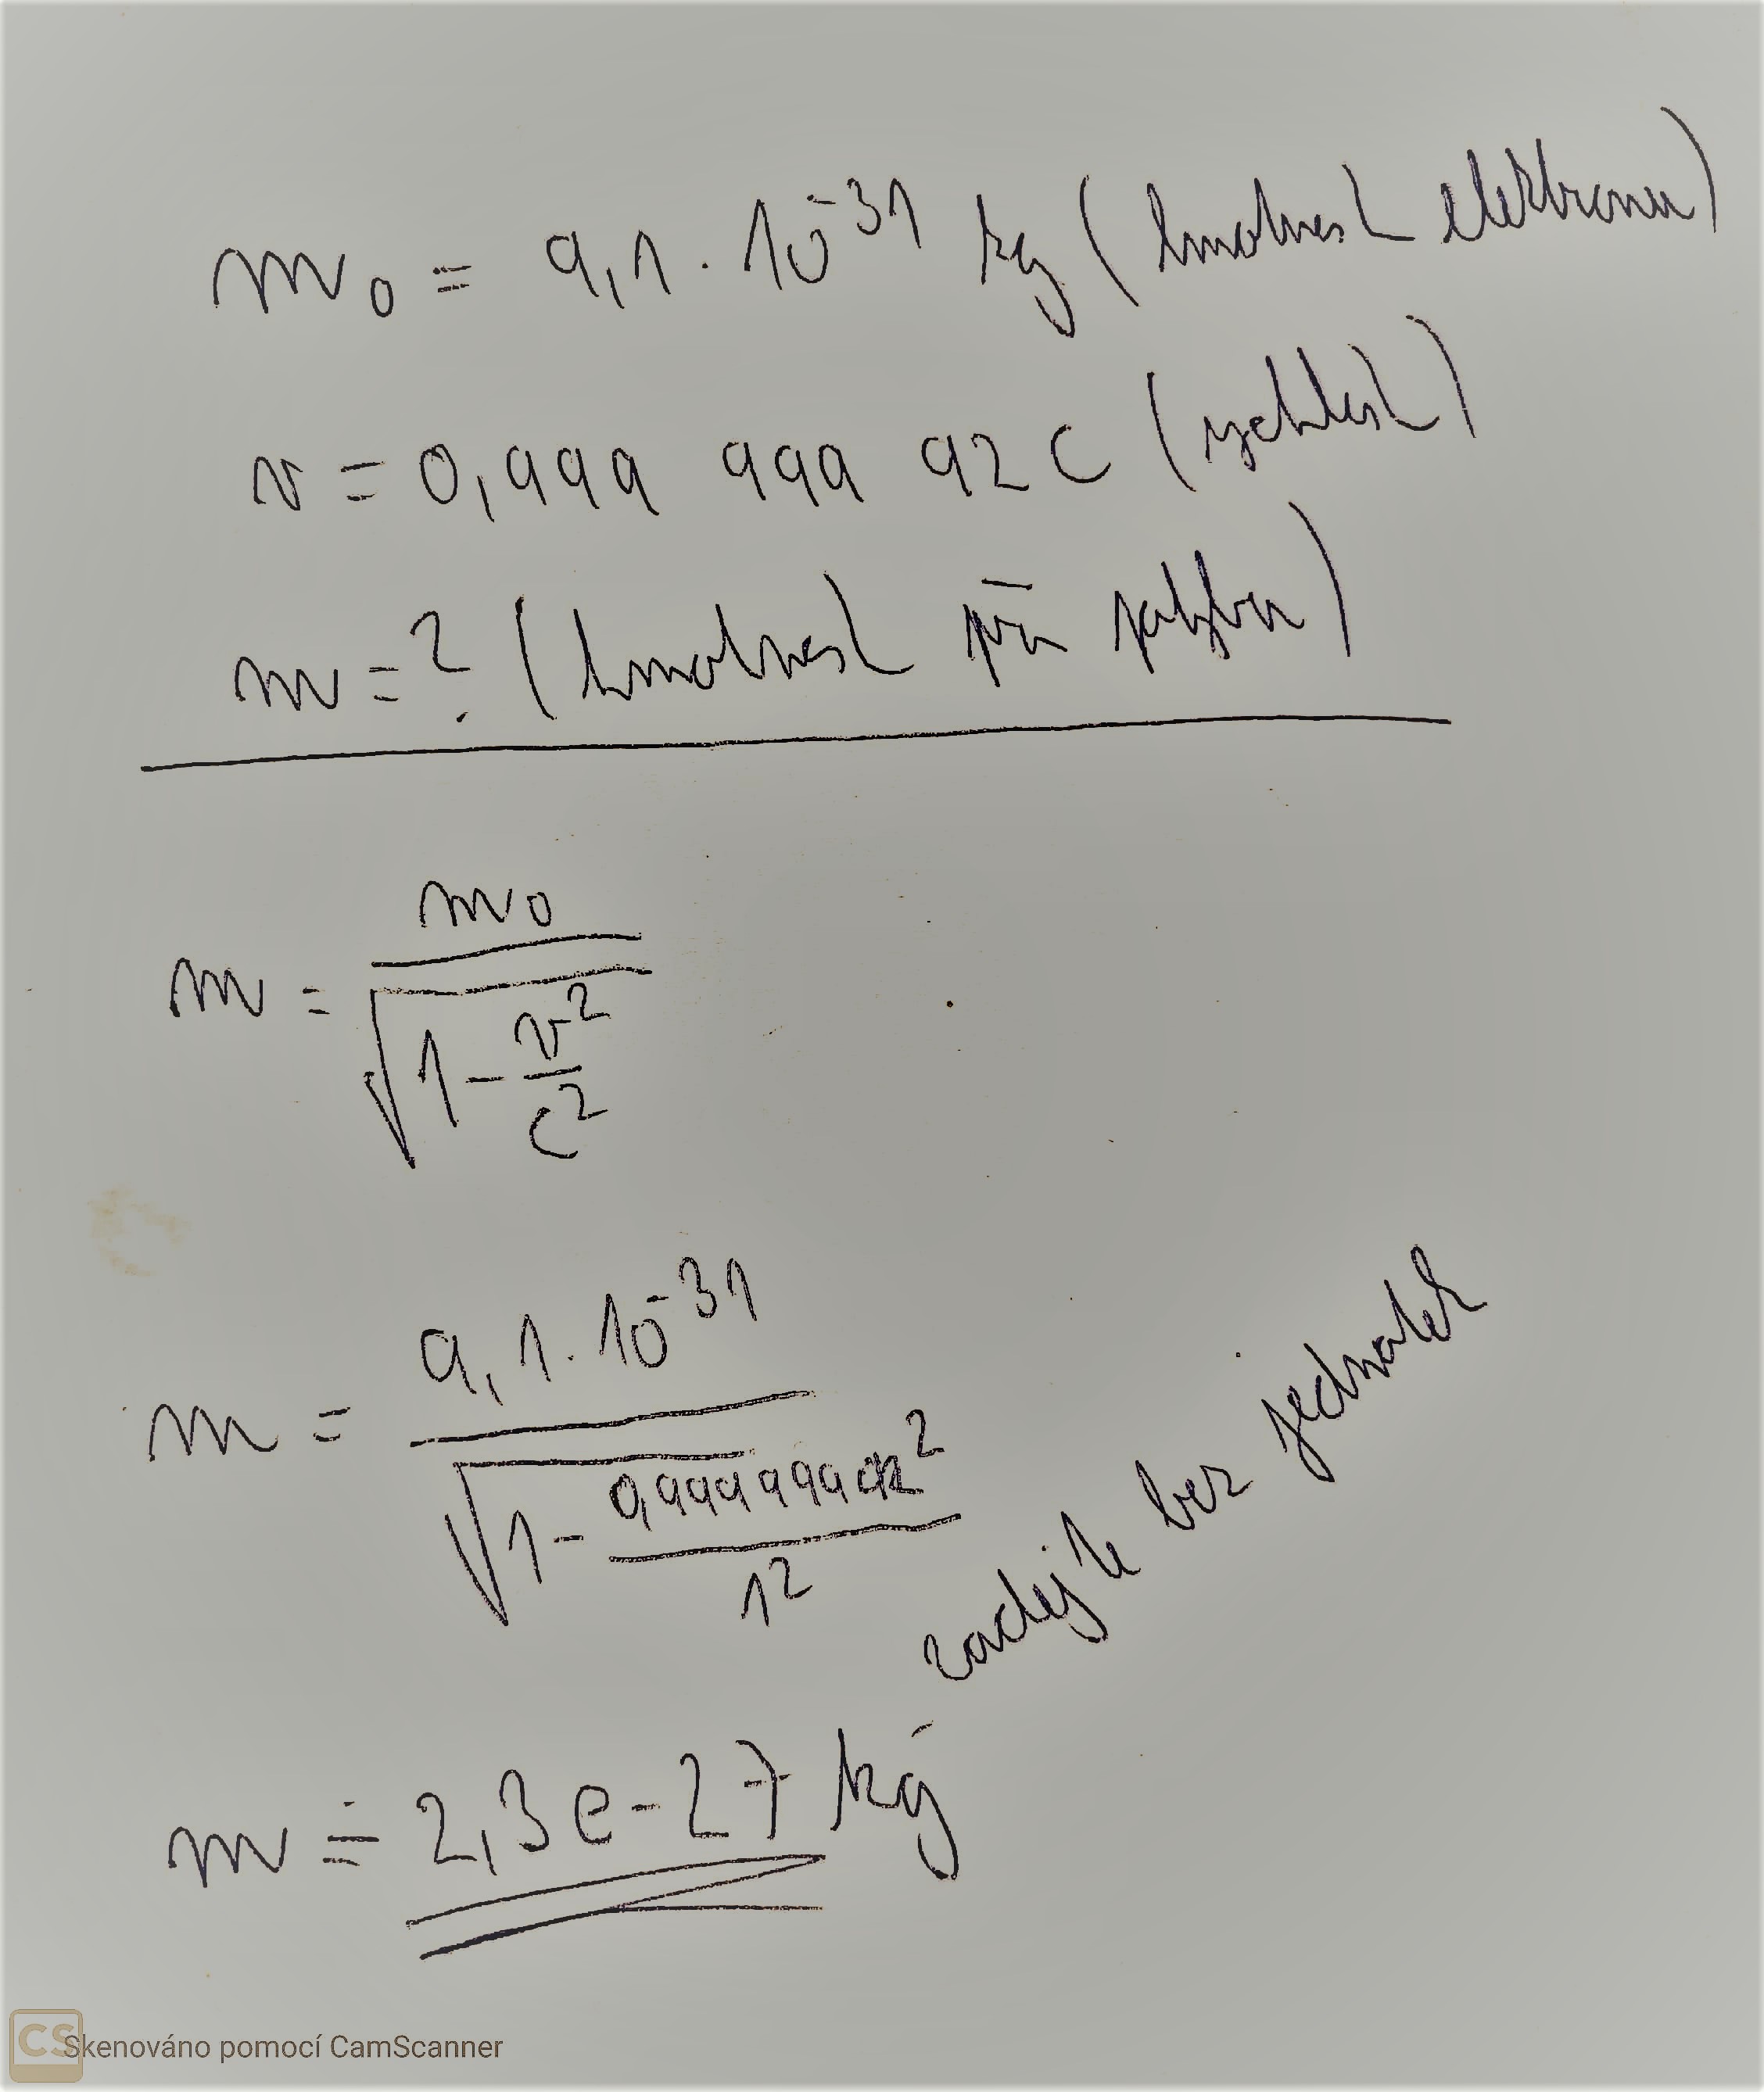 m₀ = 9,1 · 10⁻³¹ kg (hmotnost elektronu)
v = 0,999 999 92 c (rychlost)
m = ? (hmotnost při pohybu)
m = m₀ / √(1 - v²/c²)
m = 9,1 · 10⁻³¹ / √(1 - 0,99999992²/1²)
zadejte bez jednotek
m ≐ 2,3e-27 kg
CS Skenováno pomocí CamScanner